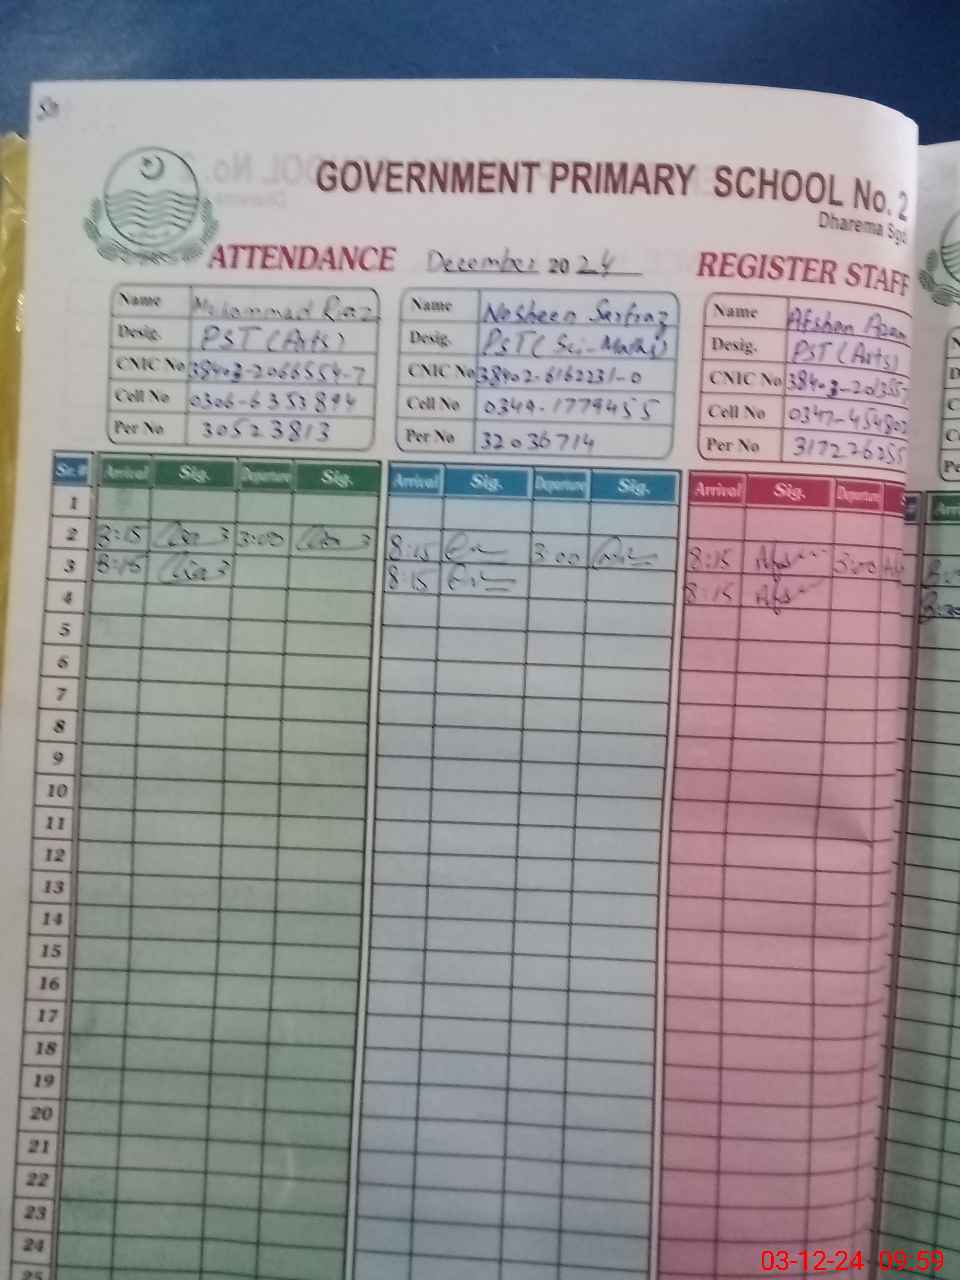 GOVERNMENT PRIMARY SCHOOL No. 2
Dharema Sgd
ATTENDANCE December 2024 REGISTER STAFF
Name Muhammad Riaz
Desig. PST (Arts)
CNIC No 38403-2066554-7
Cell No 0306-6353894
Per No 30523813
Name Nosheen Sarfraz
Desig. PST (Sci-Math)
CNIC No 38402-6162231-0
Cell No 0349-1779455
Per No 32036714
Name Afshan Azam
Desig. PST (Arts)
CNIC No 38403-201355
Cell No 0347-454802
Per No 31726255
Sr.# Arrival Sig. Departure Sig. Arrival Sig. Departure Sig. Arrival Sig. Departure
1
2 8:15 3:00 8:15 3:00 8:15 3:00
3 8:15 8:15 8:15
4
5
6
7
8
9
10
11
12
13
14
15
16
17
18
19
20
21
22
23
24
25
03-12-24 09:59